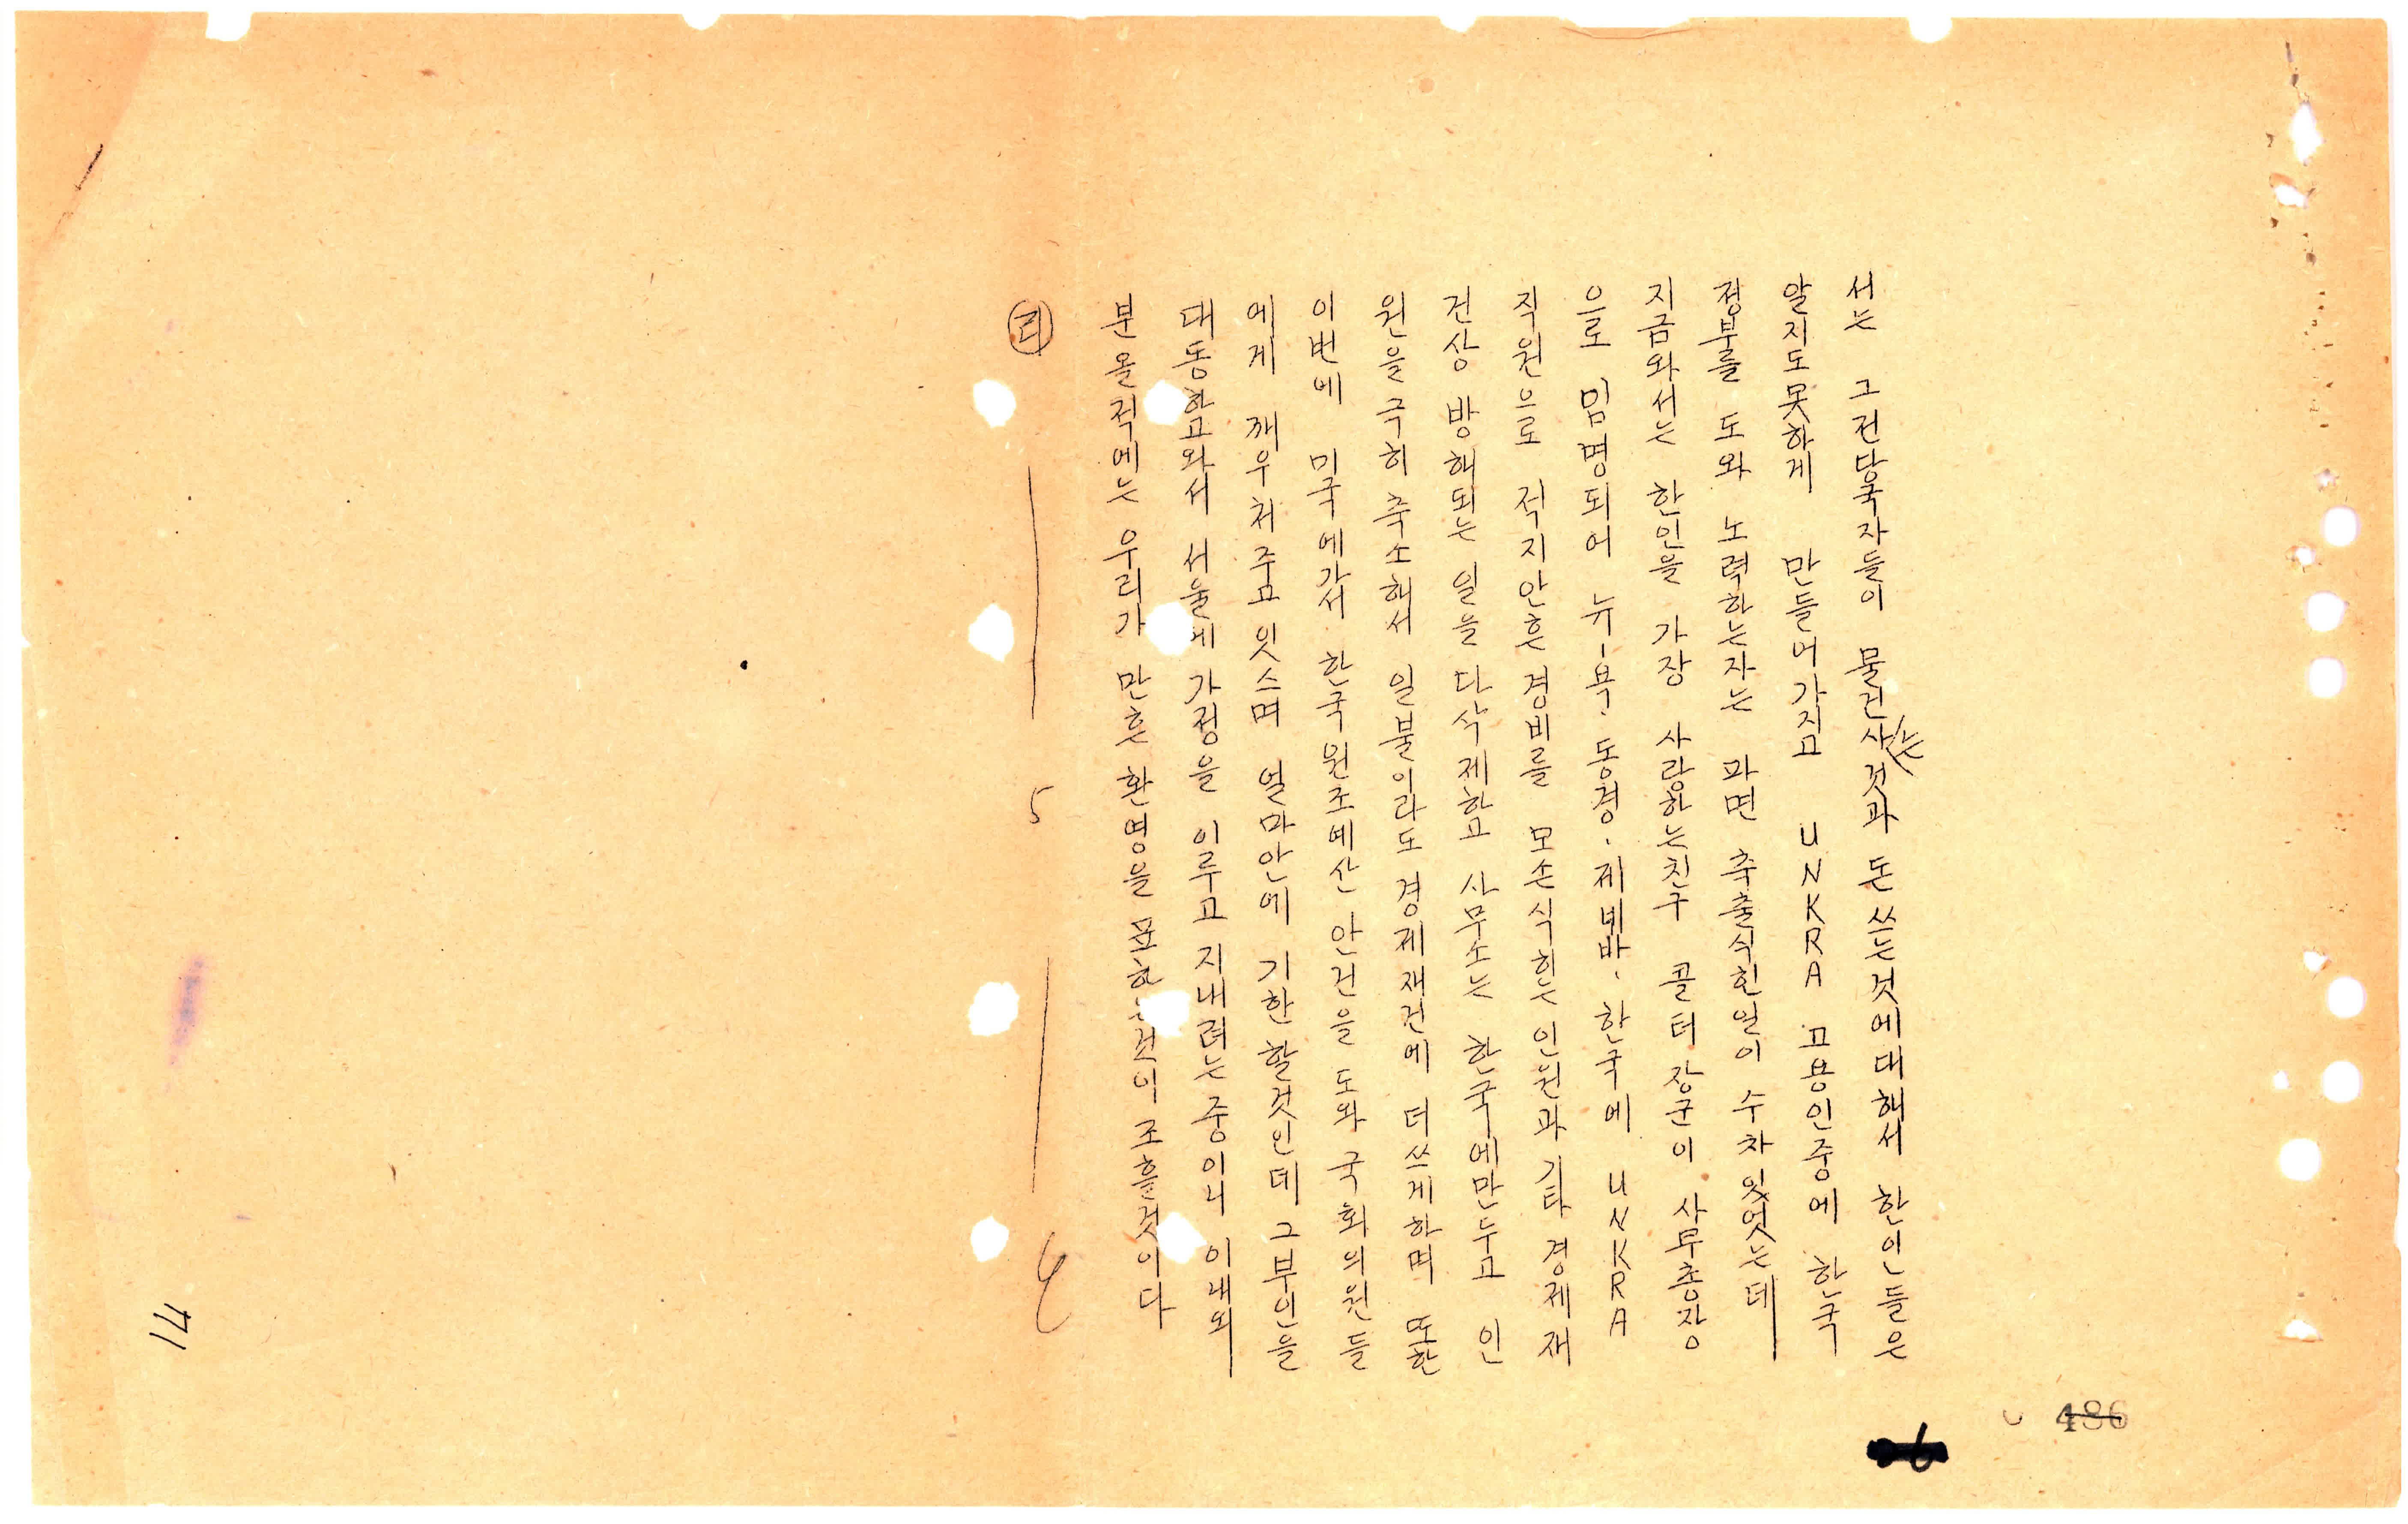 서는 그전당국자들이 물건사는것과 돈쓰는것에대해서 한인들은
알지도못하게 만들어가지고 UNKRA 고용인중에 한국
정부를 도와 노력하는자는 파면 축출식힌일이 수차잇엇는데
지금와서는 한인을 가장 사랑하는친구 콜터장군이 사무총장
으로 임명되어 뉴-욕. 동경. 제네바. 한국에 UNKRA
직원으로 적지안흔 경비를 모손식히든 인원과 기타 경제재
건상 방해되는 일을 다삭제하고 사무소는 한국에만두고 인
원을극히축소해서 일불이라도 경제재건에 더쓰게하며 또한
이번에 미국에가서 한국원조예산안건을 도와 국회의원들
에게 깨우처주고잇스며 얼마안에 기한할것인데 그부인을
대동하고와서 서울에가정을 이루고 지내려는중이니 이내외
분올적에는 우리가 만흔환영을 표하는것이 조흘것이다
리 5
17
6
486